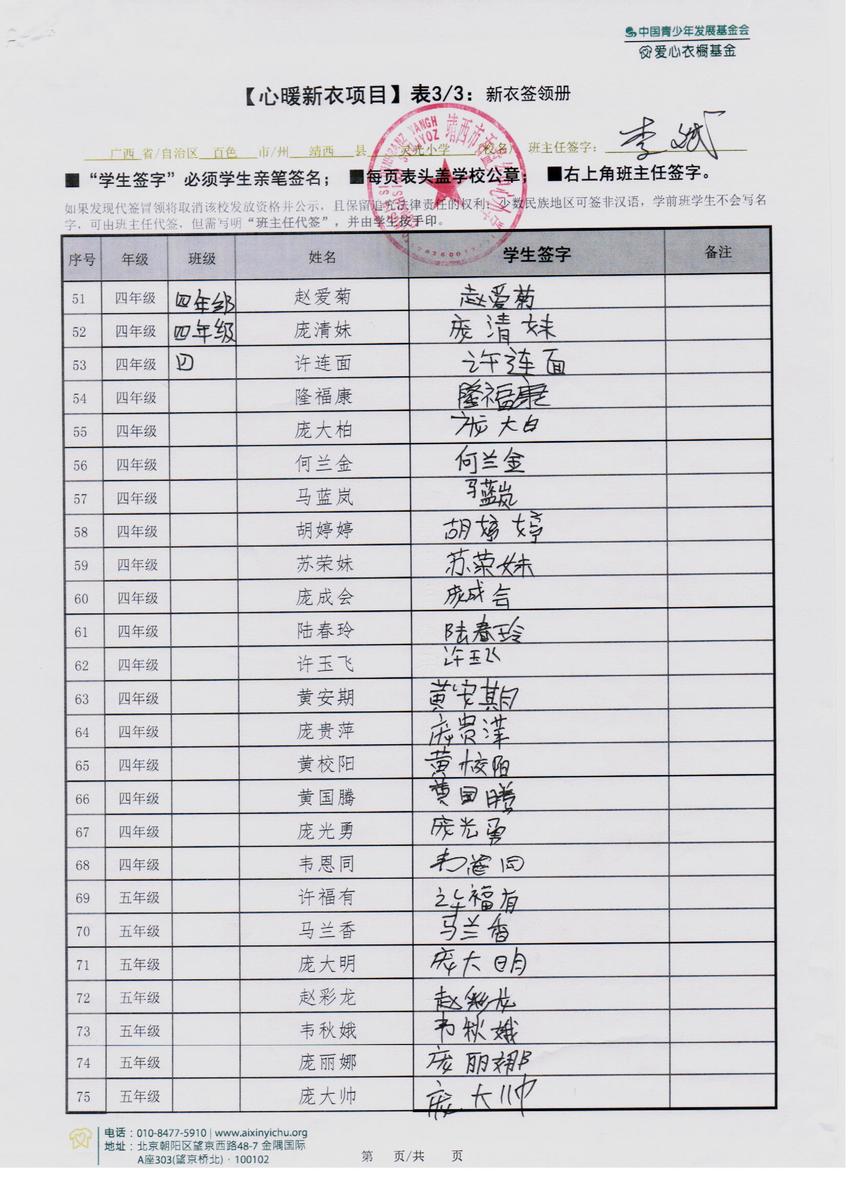 中国青少年发展基金会
爱心衣橱基金
【心暖新衣项目】表3/3：新衣签领册
广西 省/自治区 百色 市/州 靖西 县 灵光小学 校名） 班主任签字：李斌
■“学生签字”必须学生亲笔签名； ■每页表头盖学校公章；■右上角班主任签字。
如果发现代签冒领将取消该校发放资格并公示，且保留追究法律责任的权利；少数民族地区可签非汉语，学前班学生不会写名
字，可由班主任代签，但需写明“班主任代签”，并由学生按手印。
序号 年级 班级 姓名 学生签字 备注
51 四年级 四年级 赵爱菊 赵爱菊
52 四年级 四年级 庞清妹 庞清妹
53 四年级 四 许连面 许连面
54 四年级 隆福康 隆福康
55 四年级 庞大柏 庞大白
56 四年级 何兰金 何兰金
57 四年级 马蓝岚 马蓝岚
58 四年级 胡婷婷 胡婷婷
59 四年级 苏荣妹 苏荣妹
60 四年级 庞成会 庞成会
61 四年级 陆春玲 陆春玲
62 四年级 许玉飞 许玉飞
63 四年级 黄安期 黄安期
64 四年级 庞贵萍 庞贵萍
65 四年级 黄校阳 黄校阳
66 四年级 黄国腾 黄国腾
67 四年级 庞光勇 庞光勇
68 四年级 韦恩同 韦恩同
69 五年级 许福有 许福有
70 五年级 马兰香 马兰香
71 五年级 庞大明 庞大明
72 五年级 赵彩龙 赵彩龙
73 五年级 韦秋娥 韦秋娥
74 五年级 庞丽娜 庞丽娜
75 五年级 庞大帅 庞大帅
电话：010-8477-5910 | www.aixinyichu.org
地址：北京朝阳区望京西路48-7 金隅国际
A座303(望京桥北)·100102
第 页/共 页